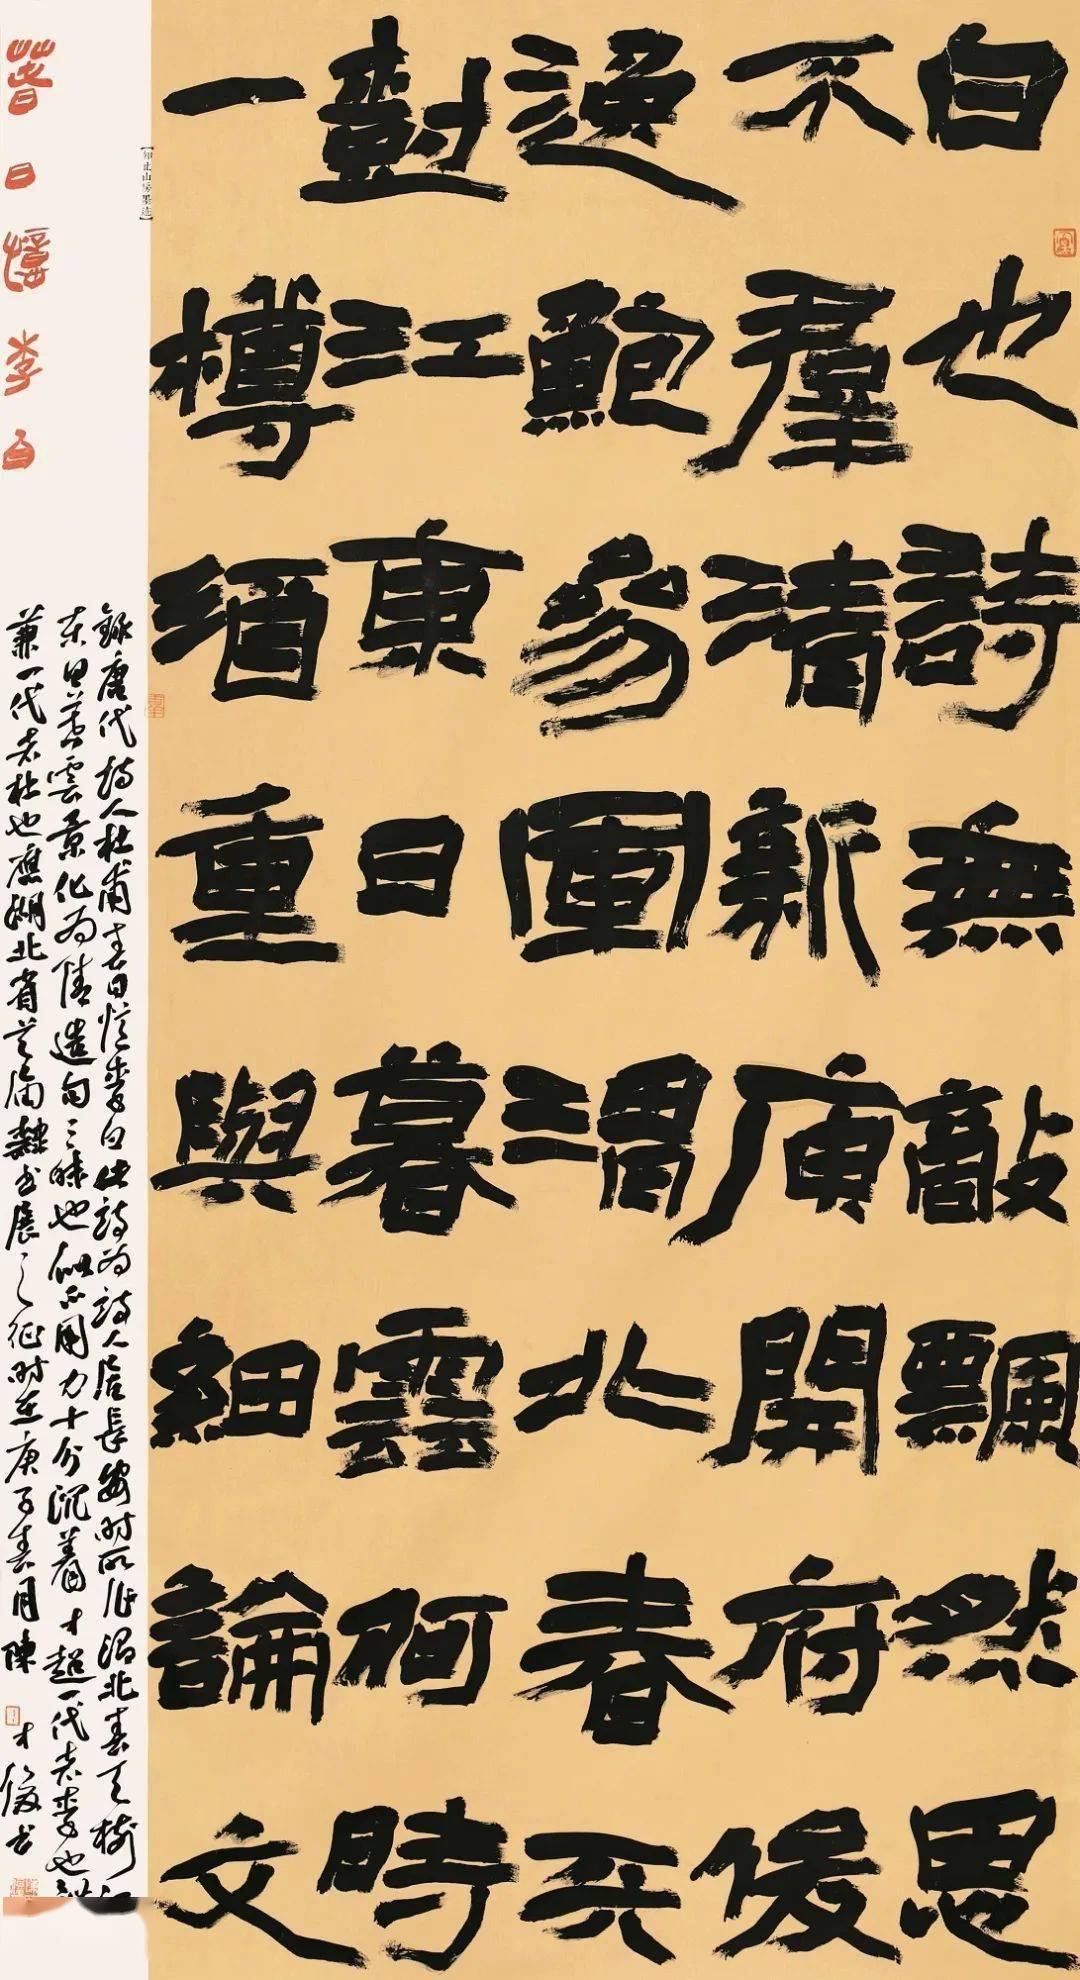 白也詩無敵飄然思
不羣清新庾開府俊
逸鮑參軍渭北春天
樹江東日暮雲何時
一樽酒重與細論文
春日憶李白
止山房墨迹
錄唐代詩人杜甫春日憶李白此詩為詩人居長安時所作渭北春天樹江
東日暮雲景化為情造句三昧也似不用力十分沉着才超一代者李也
兼一代者杜也應湖北省隸書展之征時在庚子春月陳才俊書